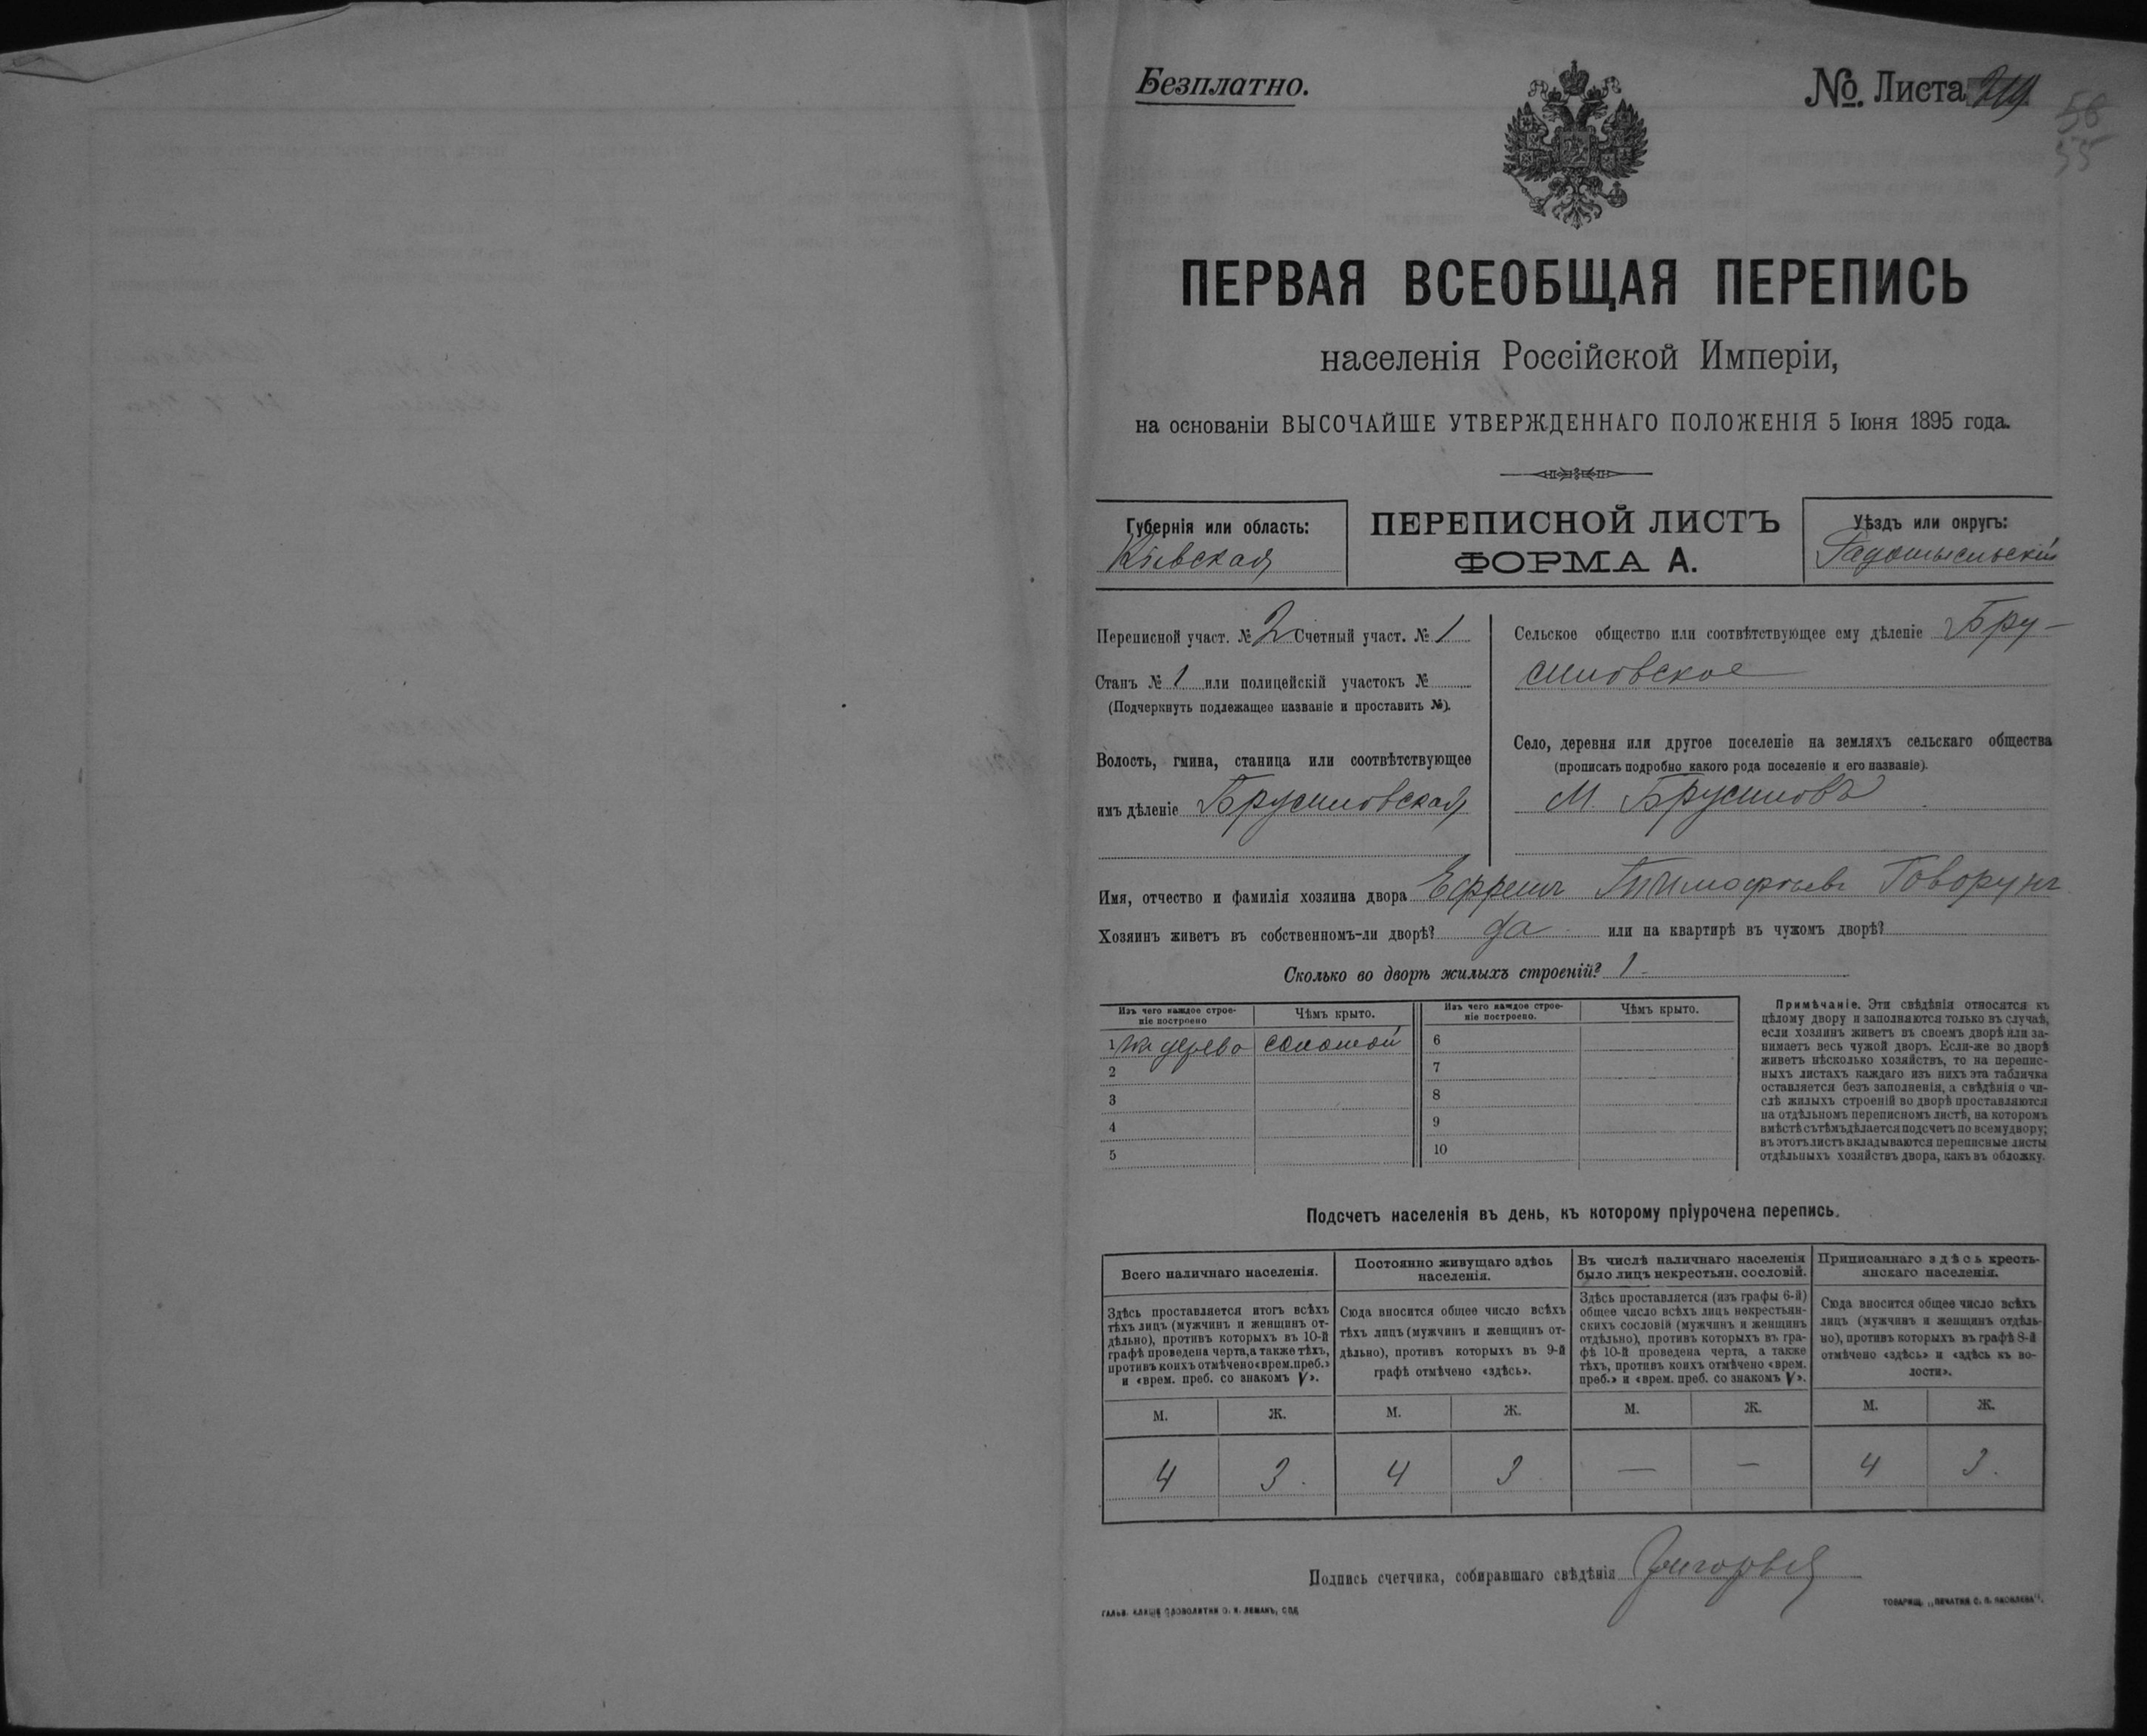 Безплатно.
№. Листа
56
55
ПЕРВАЯ ВСЕОБЩАЯ ПЕРЕПИСЬ
населенія Россійской Имперіи,
на основаніи ВЫСОЧАЙШЕ УТВЕРЖДЕННАГО ПОЛОЖЕНІЯ 5 Іюня 1895 года.
Губернія или область:
Кіевская
ПЕРЕПИСНОЙ ЛИСТЪ
ФОРМА А.
Уѣздъ или округъ:
Радомысльскій
Переписной участ. № 2 Счетный участ. № 1
Станъ № 1 или полицейскій участокъ №
(Подчеркнуть подлежащее названіе и проставить №).
Волость, гмина, станица или соотвѣтствующее
имъ дѣленіе Брусиловская
Сельское общество или соотвѣтствующее ему дѣленіе Бру-
силовское
Село, деревня или другое поселеніе на земляхъ сельскаго общества
(прописать подробно какого рода поселеніе и его названіе).
М. Брусиловъ
Имя, отчество и фамилія хозяина двора Ефремъ Тимофѣевъ Говорунъ
Хозяинъ живетъ въ собственномъ-ли дворѣ? да или на квартирѣ въ чужомъ дворѣ?
Сколько во дворѣ жилыхъ строеній? 1
Изъ чего каждое строе-
ніе построено
Чѣмъ крыто.
1 дерево соломой
2
3
4
5
Изъ чего каждое строе-
ніе построено.
Чѣмъ крыто.
6
7
8
9
10
Примѣчаніе. Эти свѣдѣнія относятся къ
цѣлому двору и заполняются только въ случаѣ,
если хозяинъ живетъ въ своемъ дворѣ или за-
нимаетъ весь чужой дворъ. Если-же во дворѣ
живетъ нѣсколько хозяйствъ, то на перепис-
ныхъ листахъ каждаго изъ нихъ эта табличка
оставляется безъ заполненія, а свѣдѣнія о чи-
слѣ жилыхъ строеній во дворѣ проставляются
на отдѣльномъ переписномъ листѣ, на которомъ
вмѣстѣ съ тѣмъ дѣлается подсчетъ по всему двору;
въ этотъ листъ вкладываются переписные листы
отдѣльныхъ хозяйствъ двора, какъ въ обложку.
Подсчетъ населенія въ день, къ которому пріурочена перепись.
Всего наличнаго населенія.
Здѣсь проставляется итогъ всѣхъ
тѣхъ лицъ (мужчинъ и женщинъ от-
дѣльно), противъ которыхъ въ 10-й
графѣ проведена черта, а также тѣхъ,
противъ коихъ отмѣчено «врем. преб.»
и «врем. преб. со знакомъ V».
М. Ж.
4 3.
Постоянно живущаго здѣсь
населенія.
Сюда вносится общее число всѣхъ
тѣхъ лицъ (мужчинъ и женщинъ от-
дѣльно), противъ которыхъ въ 9-й
графѣ отмѣчено «здѣсь».
М. Ж.
4 3
Въ числѣ наличнаго населенія
было лицъ некрестьян. сословій.
Здѣсь проставляется (изъ графы 6-й)
общее число всѣхъ лицъ некрестьян-
скихъ сословій (мужчинъ и женщинъ
отдѣльно), противъ которыхъ въ гра-
фѣ 10-й проведена черта, а также
тѣхъ, противъ коихъ отмѣчено «врем.
преб.» и «врем. преб. со знакомъ V».
М. Ж.
— —
Приписаннаго здѣсь кресть-
янскаго населенія.
Сюда вносится общее число всѣхъ
лицъ (мужчинъ и женщинъ отдѣль-
но), противъ которыхъ въ графѣ 8-й
отмѣчено «здѣсь» и «здѣсь къ во-
лости».
М. Ж.
4 3.
Подпись счетчика, собиравшаго свѣдѣнія
ГАЛЬВ. КЛИШЕ СЛОВОЛИТНИ О. И. ЛЕМАНЪ, СПБ
ТОВАРИЩ. „ПЕЧАТНЯ С. П. ЯКОВЛЕВА".